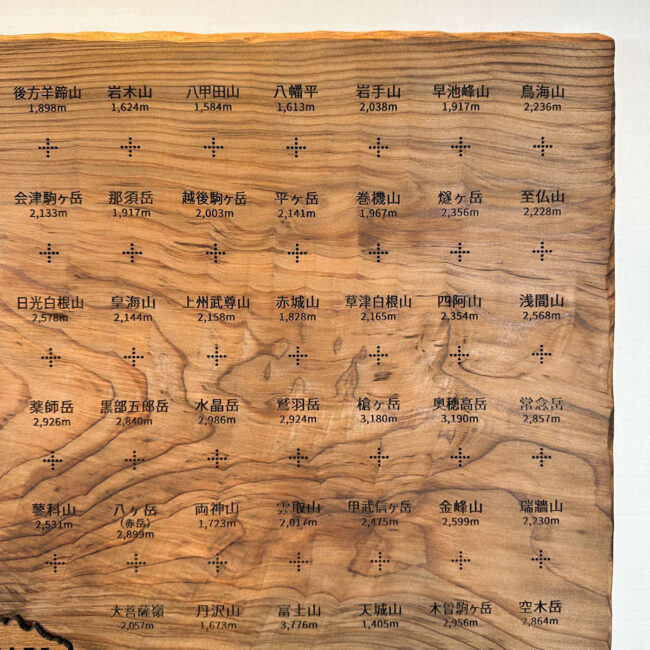 後方羊蹄山 岩木山 八甲田山 八幡平 岩手山 早池峰山 鳥海山
1,898m 1,624m 1,584m 1,613m 2,038m 1,917m 2,236m
会津駒ヶ岳 那須岳 越後駒ヶ岳 平ヶ岳 巻機山 燧ヶ岳 至仏山
2,133m 1,917m 2,003m 2,141m 1,967m 2,356m 2,228m
日光白根山 皇海山 上州武尊山 赤城山 草津白根山 四阿山 浅間山
2,578m 2,144m 2,158m 1,828m 2,165m 2,354m 2,568m
薬師岳 黒部五郎岳 水晶岳 鷲羽岳 槍ヶ岳 奥穂高岳 常念岳
2,926m 2,840m 2,986m 2,924m 3,180m 3,190m 2,857m
蓼科山 八ヶ岳 両神山 雲取山 甲武信ヶ岳 金峰山 瑞牆山
2,531m (赤岳) 1,723m 2,017m 2,475m 2,599m 2,230m
2,899m
大菩薩嶺 丹沢山 富士山 天城山 木曽駒ヶ岳 空木岳
2,057m 1,673m 3,776m 1,405m 2,956m 2,864m